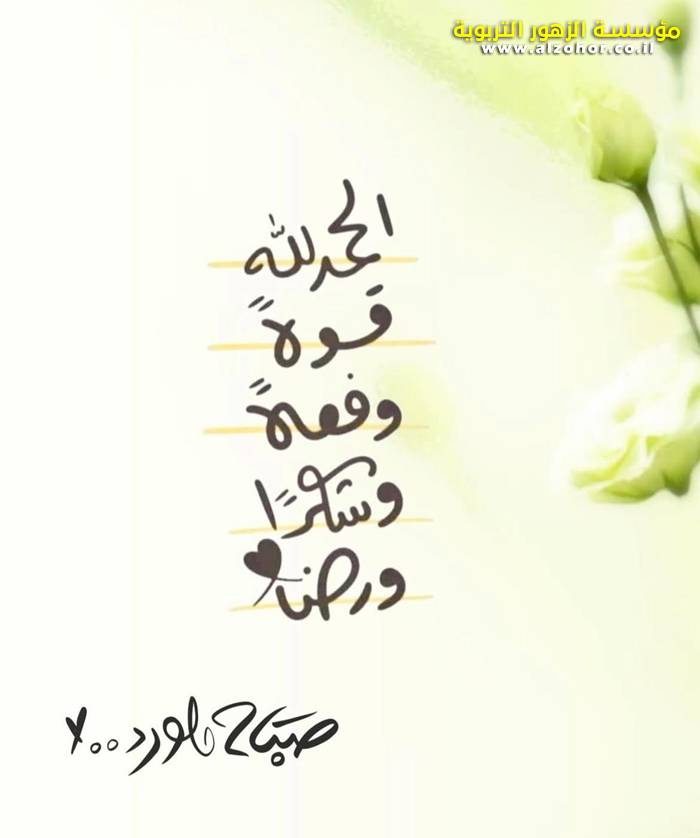 مؤسسة الزهور التربوية
www.alzohor.co.il
الحمدلله
قولاً
وفعلاً
وشكرًا
ورضا
صباح الورد